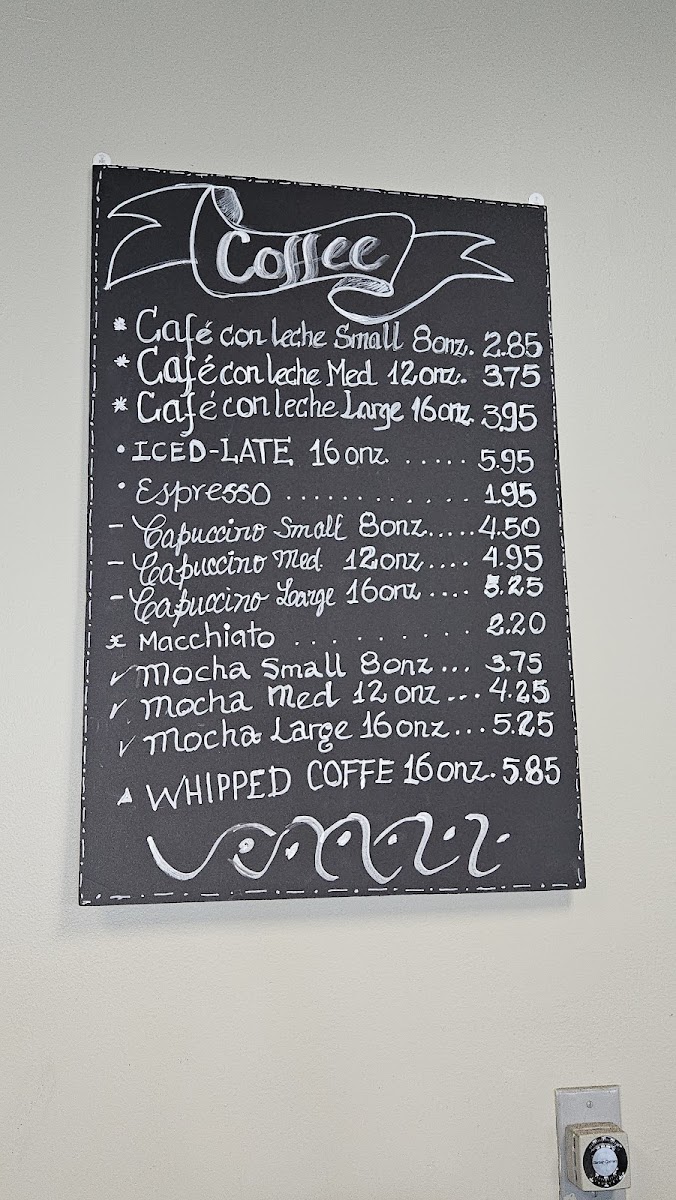 Coffee
* Café con leche Small 8onz. 2.85
* Café con leche Med 12onz. 3.75
* Café con leche Large 16onz. 3.95
• ICED-LATE 16onz. ..... 5.95
• Espresso ............ 1.95
- Capuccino Small 8onz..... 4.50
- Capuccino Med. 12onz.... 4.95
- Capuccino Large 16onz .... 5.25
x Macchiato . . . . . . . . . 2.20
✓ Mocha Small 8onz ... 3.75
✓ Mocha Med 12onz ... 4.25
✓ Mocha Large 16onz... 5.25
▲ WHIPPED COFFE 16onz. 5.85